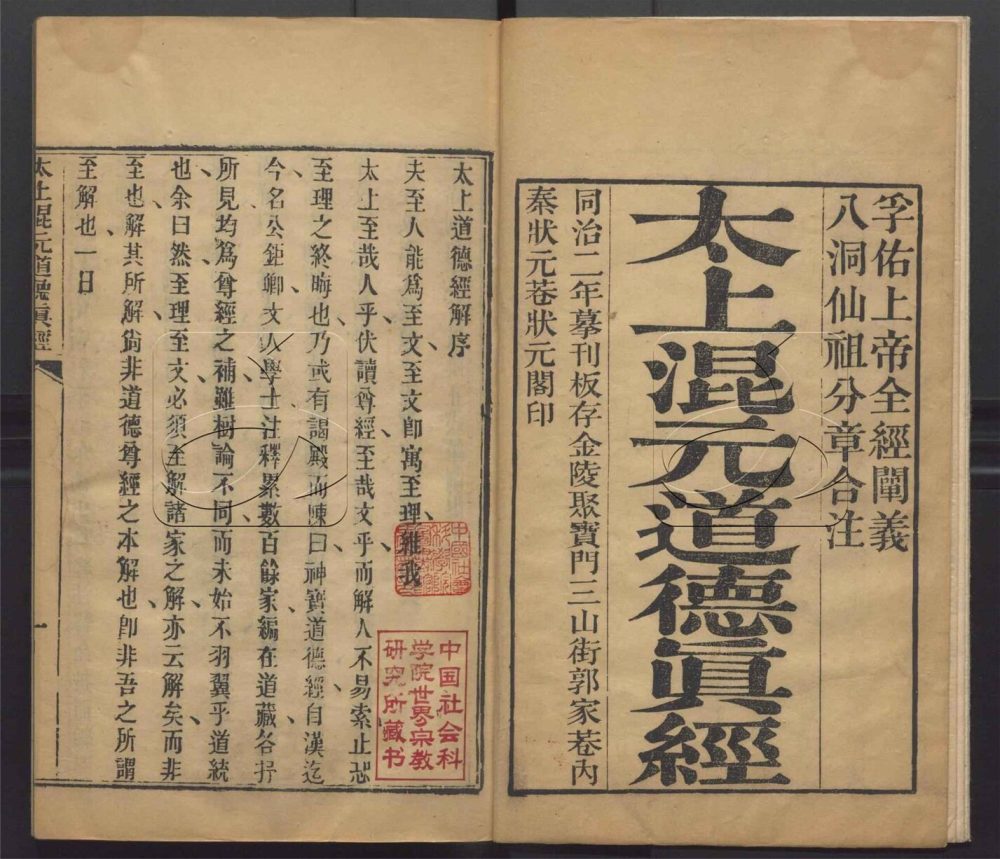 孚佑上帝全經闡義
八洞仙祖分章合注
太上混元道德眞經
同治二年摹刊板存金陵聚寶門三山街郭家巷內
秦狀元巷狀元閣印
太上道德經解序
夫至人能爲至文至文卽寓至理、維我
太上至哉人乎伏讀尊經至哉文乎而解人不易索止恐
至理之終晦也乃或有謁殿而陳曰神寶道德經自漢迄
今名公鉅卿文人學士注釋累數百餘家編在道藏各抒
所見均爲尊經之補雖樹論不同而未始不羽翼乎道統
也余曰然至理至文必須至解諸家之解亦云解矣而非
至也解其所解尙非道德尊經之本解也卽非吾之所謂
至解也一日
太上混元道德眞經
一
中国社会科
学院世界宗教
研究所藏书